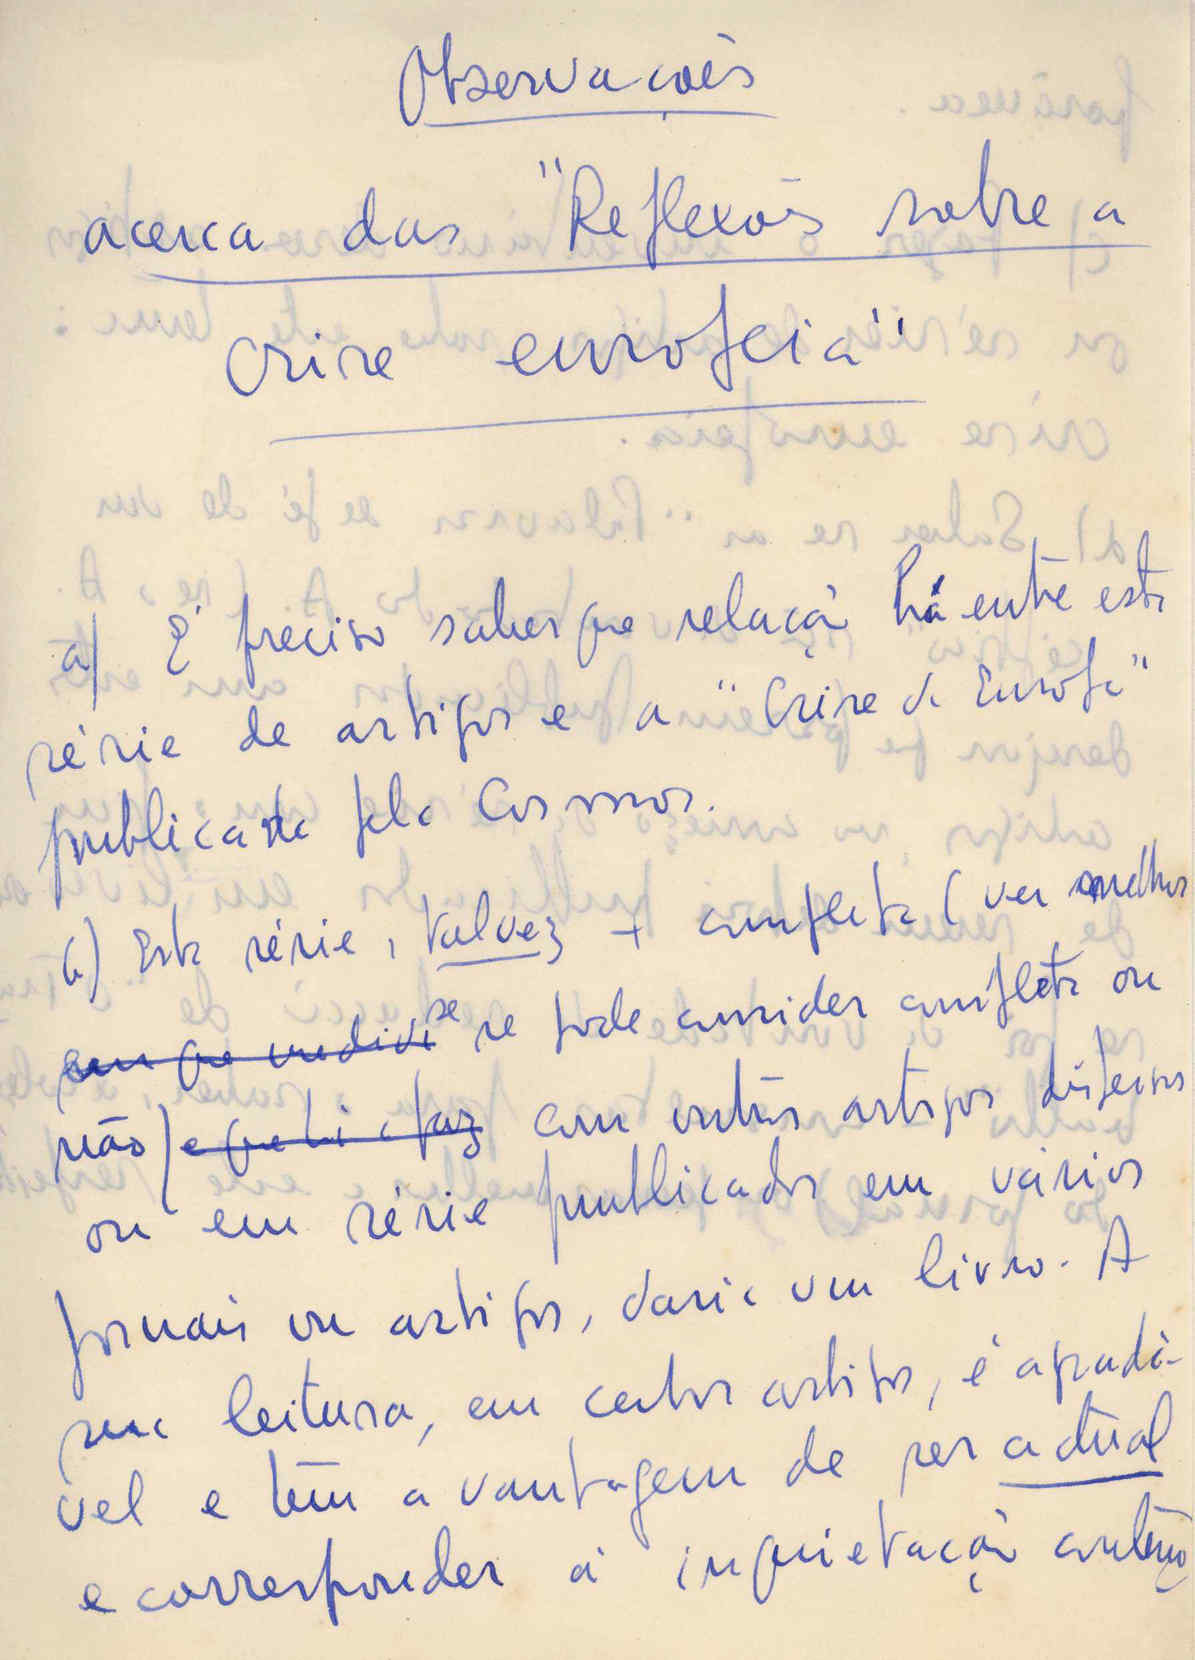 Observações
acerca das "Reflexões sobre a
crise europeia"
a) É preciso saber que relação há entre esta
série de artigos e a "Crise da Europa"
publicada pela Cosmos.
b) Esta série, talvez + completa (ver melhor
se se pode consider completa ou
não) com outros artigos dispersos
ou em série publicados em vários
jornais ou artigos, daria um livro. A
sua leitura, em certos artigos, é agradá-
vel e tem a vantagem de ser actual
e corresponder à inquietação contem